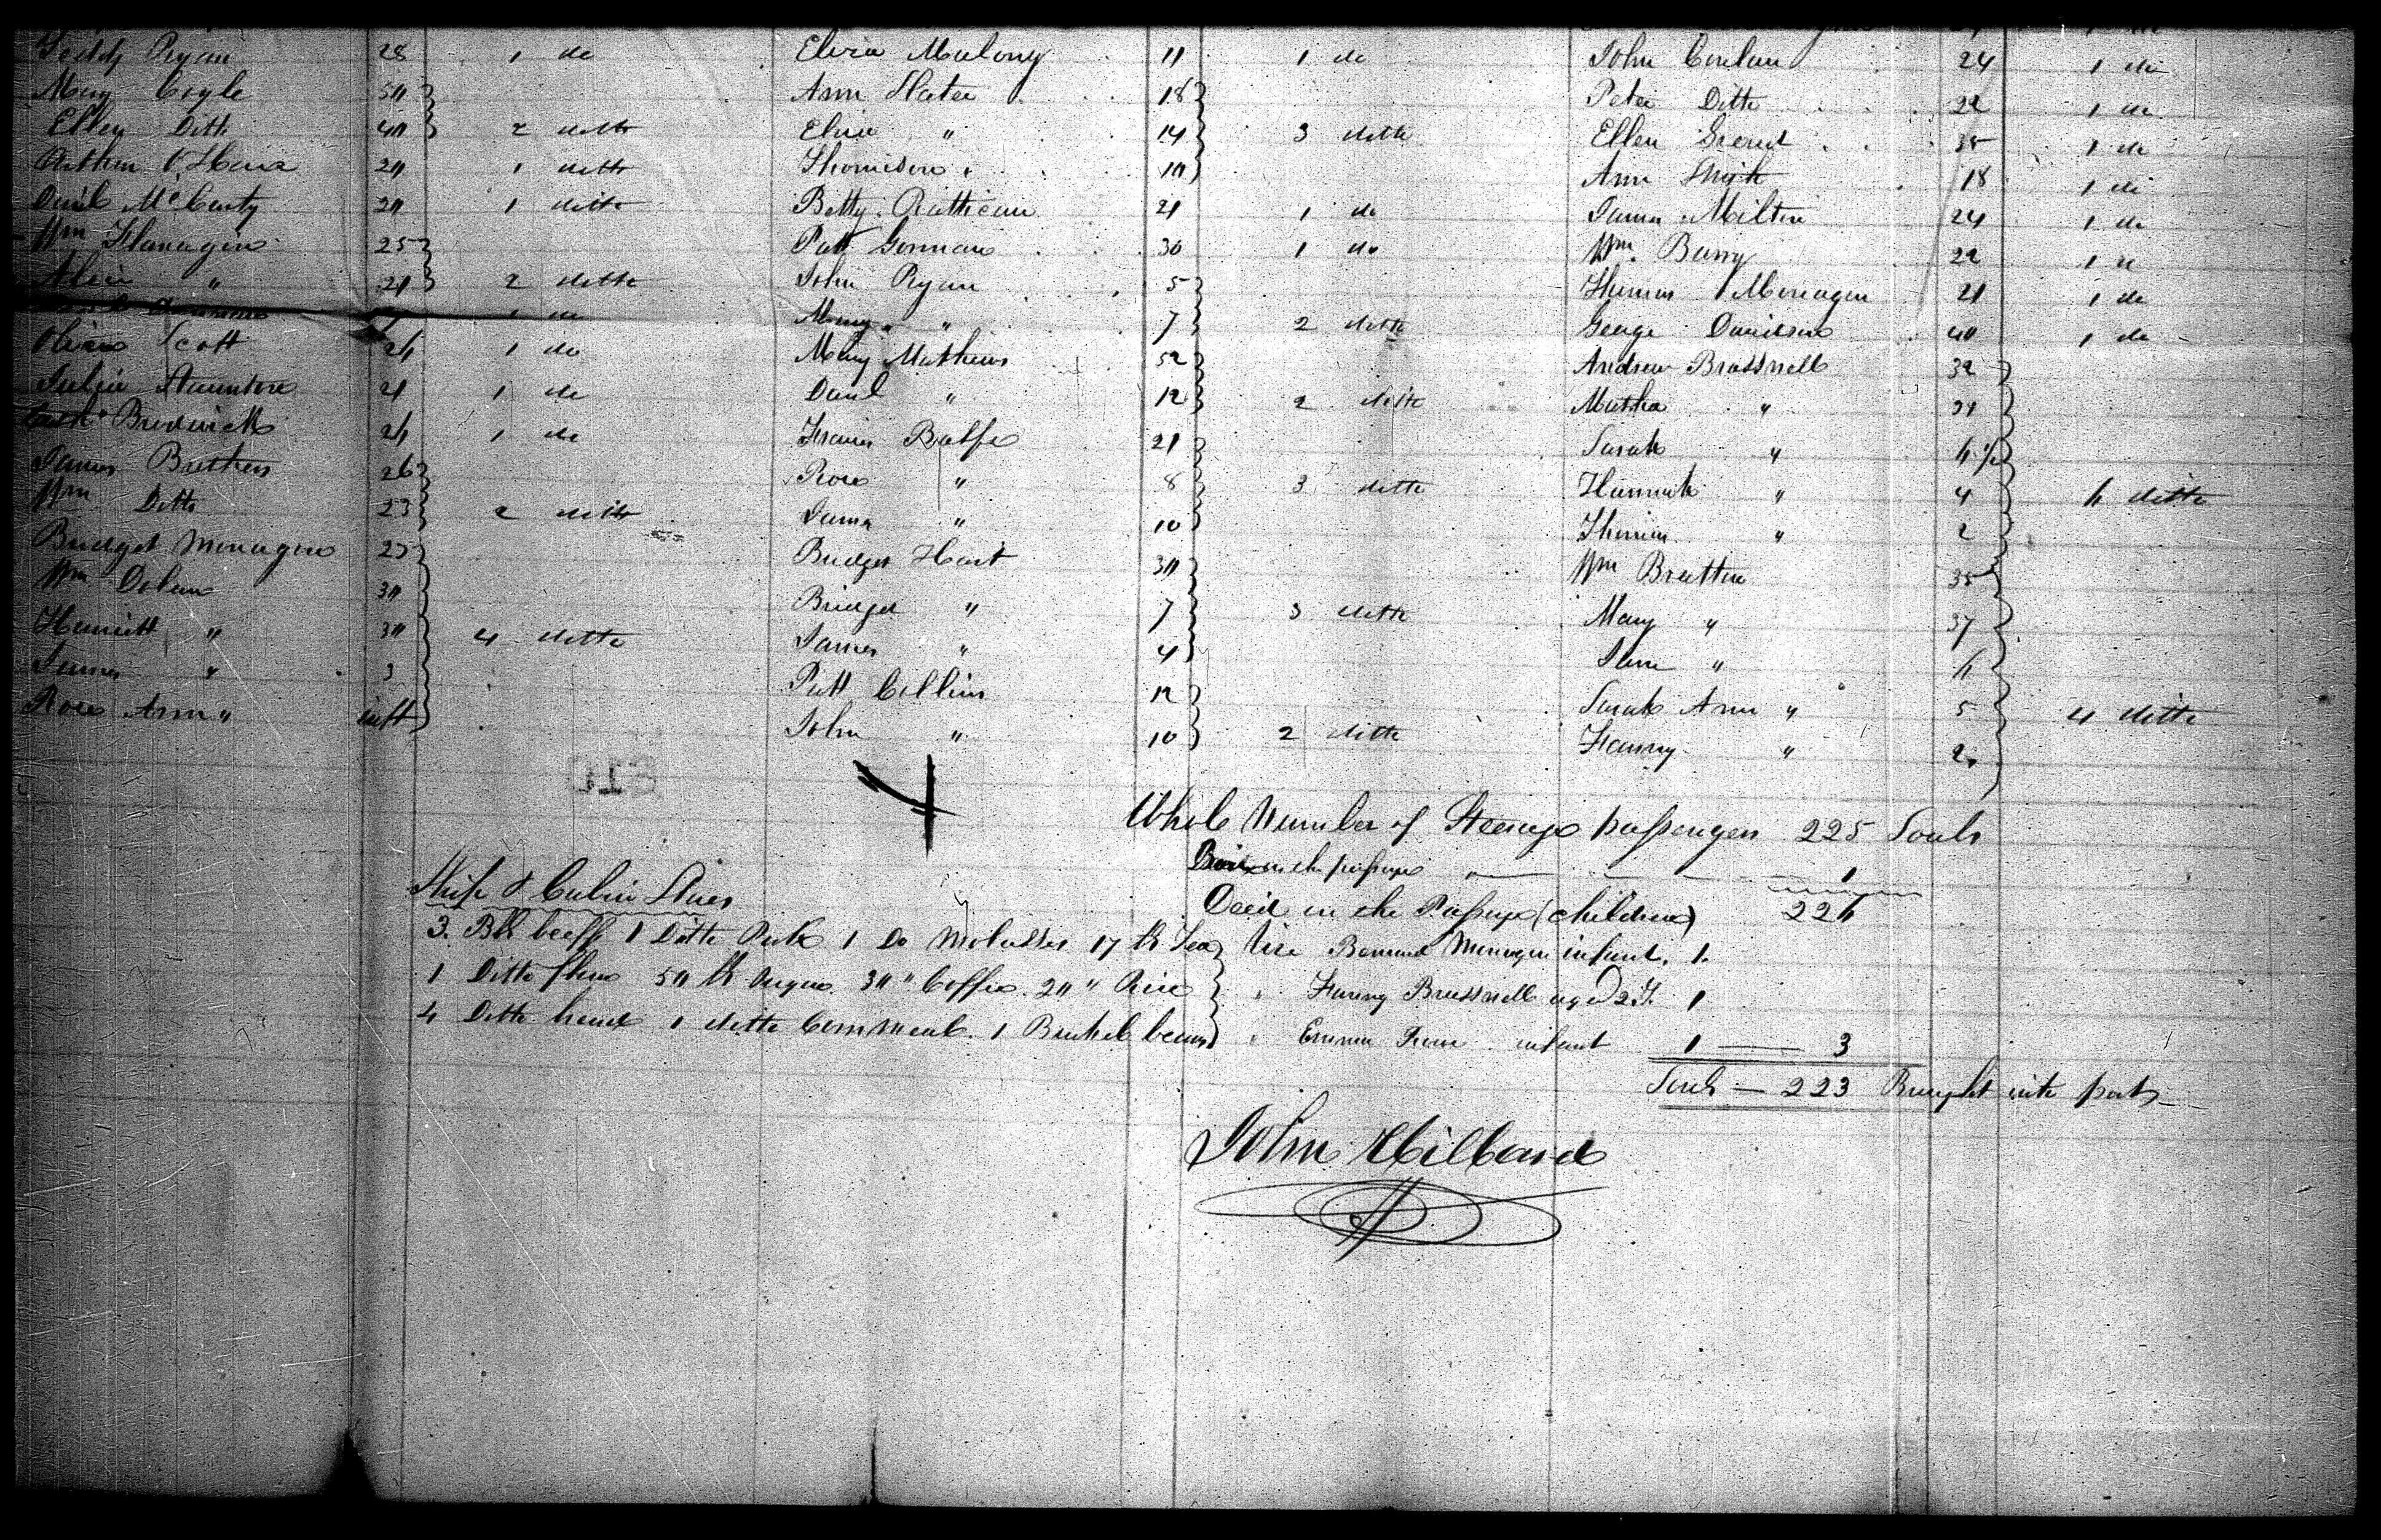 Teddy Ryan 28 1 do
Mary Coyle 50
Ellen Ditto 40 2 ditto
Arthur O'Hara 20 1 ditto
Danl McCarty 20 1 ditto
Wm Flanagin 25
" 21 2 ditto
1 do
Scott 1 do
Julia Staunton 21 1 do
Brodwick 1 do
James Brothers 26
Wm Ditto 23 2 ditto
Bridget Monagin
Wm Dolan 30
Harriett " 30 4 ditto
James " 3
Rose Ann " inft
Eliza Malony 11 1 do
Ann Slater 18
Eliza " 14 3 ditto
Thomison " 10
Betty 21 1 do
Patt Gorman 30 1 do
John Ryan 5
Mary " 7 2 ditto
Mary Mathews 52
Danl " 12 2 ditto
Francis 21
Rose " 8 3 ditto
James " 10
Bridget Hart 30
Bridget " 7 3 ditto
James " 4
Patt Collins 12
John " 10 2 ditto
John Conlan 24 1 do
Peter Ditto 22 1 do
Ellen 35 1 do
Ann Smith 18 1 do
James Milton 24 1 do
Wm. Barry 22 1 do
Thomas Monagin 21 1 do
George Davidson 40 1 do
Andrew Brassnell 32
Martha "
Sarah " 6 1/2
Hannah " 4 6 ditto
Thomas " 2
Wm Bratton 35
Mary " 37
Jane " 6
Sarah Ann " 5 4 ditto
Fanny " 2
Whole Number of Steerage passengers 225 Souls
Born on the passage 1
226
Died on the Passage (children)
Vize Bernard Monagin infant. 1.
" Fanny Brassnell aged 2 Y. 1
" Emma infant 1 — 3
Souls — 223 Brought into port
Ship & Cabin Stores
3. Bbl beeff 1 Ditto Pork 1 Do Molasses 17 lb Tea
1 Ditto flour 50 lb sugar 30 " Coffee 20 " Rice
4 Ditto bread 1 ditto Cornmeal. 1 Bushel beans
John Hilbard